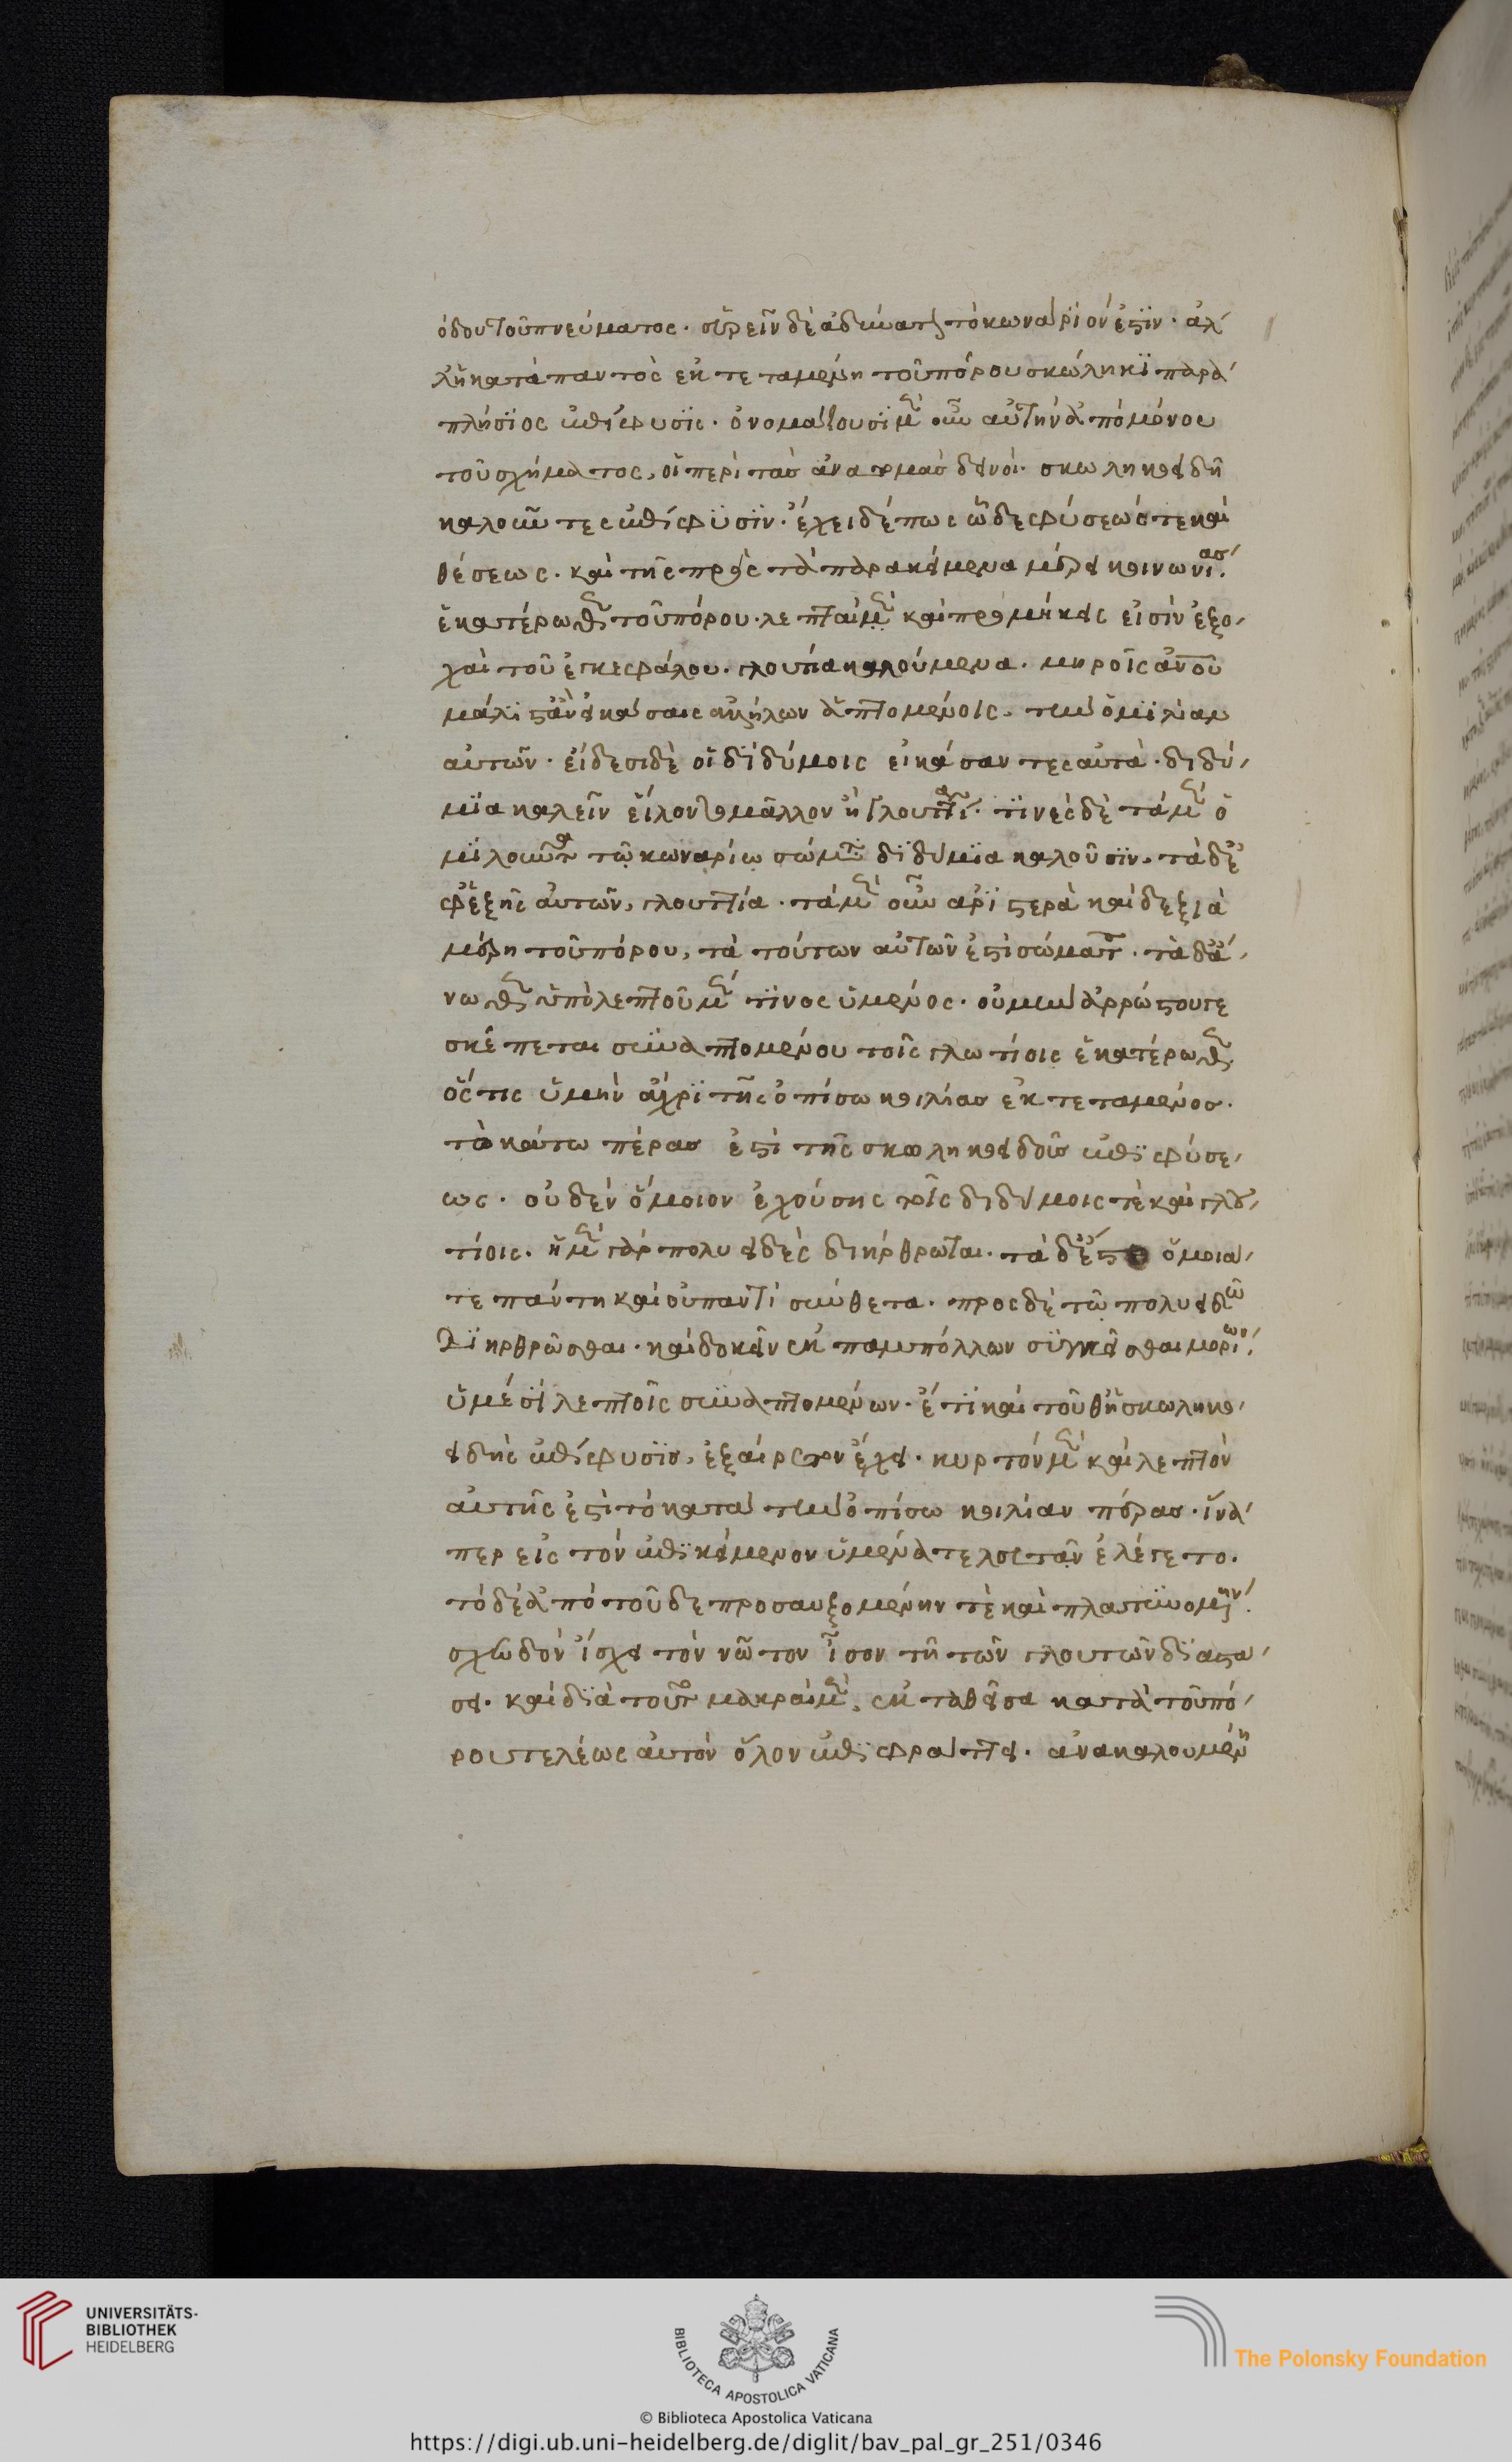 ὁδοῦ τοῦ πνεύματος. εὑρεῖν δὲ ἀδύνατον τὸ κωνάριόν ἐστιν. ἀλ
λ' ἡ κατὰ παντὸς ἐκτεταμένη τοῦ πόρου σκώληκι παρα
πλήσιος ἐπίφυσις. ὀνομάζουσι μὲν οὖν αὐτὴν ἀπὸ μόνου
τοῦ σχήματος, οἱ περὶ τὰς ἀνατομὰς δεινοί. σκωληκοειδῆ
καλοῦντες ἐπίφυσιν. ἔχει δέ πως ὧδε φύσεώς τε καὶ
θέσεως. καὶ τῆς πρὸς τὰ παρακείμενα μόρια κοινωνίας.
ἑκατέρωθεν τοῦ πόρου. λεπταὶ μὲν καὶ προμήκεις εἰσὶν ἐξο
χαὶ τοῦ ἐγκεφάλου. γλουτία καλούμενα. μηροῖς ἀνθρώπου
μάλιστ' ἂν εἰκάσαις ἀλλήλων ἁπτομένοις. τὴν ὁμιλίαν
αὐτῶν. εἰσὶ δὲ οἳ διδύμοις εἰκάσαντες αὐτὰ. διδύ
μια καλεῖν εἵλοντο μᾶλλον ἢ γλουτία. τινὲς δὲ τὰ μὲν ὁ
μιλοῦντα τῷ κωναρίῳ σώματα διδύμια καλοῦσιν. τὰ δὲ
ἐφεξῆς αὐτῶν, γλουτία. τὰ μὲν οὖν ἀριστερὰ καὶ δεξιὰ
μέρη τοῦ πόρου, τὰ τούτων αὐτῶν ἐστὶ σώματα. τὰ δ' ἄ
νωθεν ὑπὸ λεπτοῦ μέν τινος ὑμένος. οὐ μὴν ἀρρώστου γε
σκέπεται συναπτομένου τοῖς γλωτίοις ἑκατέρωθεν
ὅστις ὑμὴν ἄχρι τῆς ὀπίσω κοιλίας ἐκτεταμένος.
τὸ κάτω πέρας ἐστὶ τῆς σκωληκοειδοῦς ἐπιφύσε
ως. οὐδὲν ὅμοιον ἐχούσης τοῖς διδύμοις τε καὶ γλου
τίοις. ἡ μὲν γὰρ πολυειδὲς διήρθρωται. τὰ δέ ἐστιν ὅμοιά
τε πάντη καὶ οὐ παντὶ σύνθετα. προς δὲ τῷ πολυειδῶς
διηρθρῶσθαι. καὶ δοκεῖν ἐκ παμπόλλων συγκεῖσθαι μορίων.
ὑμέσι λεπτοῖς συναπτομένων. ἔτι καὶ τοῦθ' ἡ σκωληκο
ειδὴς ἐπίφυσις, ἐξαίρετον ἔχει. κυρτὸν μὲν καὶ λεπτὸν
αὐτῆς ἐστὶ τὸ κατὰ τὴν ὀπίσω κοιλίαν πέρας. ἵνα
περ εἰς τὸν ἐπικείμενον ὑμένα τελευτᾶν ἐλέγετο.
τὸ δὲ ἀπὸ τοῦδε προσαυξομένην τε καὶ πλατυνομένην.
σχεδὸν ἴσχει τὸν νῶτον ἴσον τῇ τῶν γλουτῶν διαστά
σει. καὶ διὰ τοῦτο μακρὰ μὲν, ἐκταθεῖσα κατὰ τοῦ πό
ρου τελέως αὐτὸν ὅλον ἐπιφράττει. ἀνακαλουμένη
UNIVERSITÄTS-
BIBLIOTHEK
HEIDELBERG
BIBLIOTECA APOSTOLICA VATICANA
The Polonsky Foundation
© Biblioteca Apostolica Vaticana
https://digi.ub.uni-heidelberg.de/diglit/bav_pal_gr_251/0346